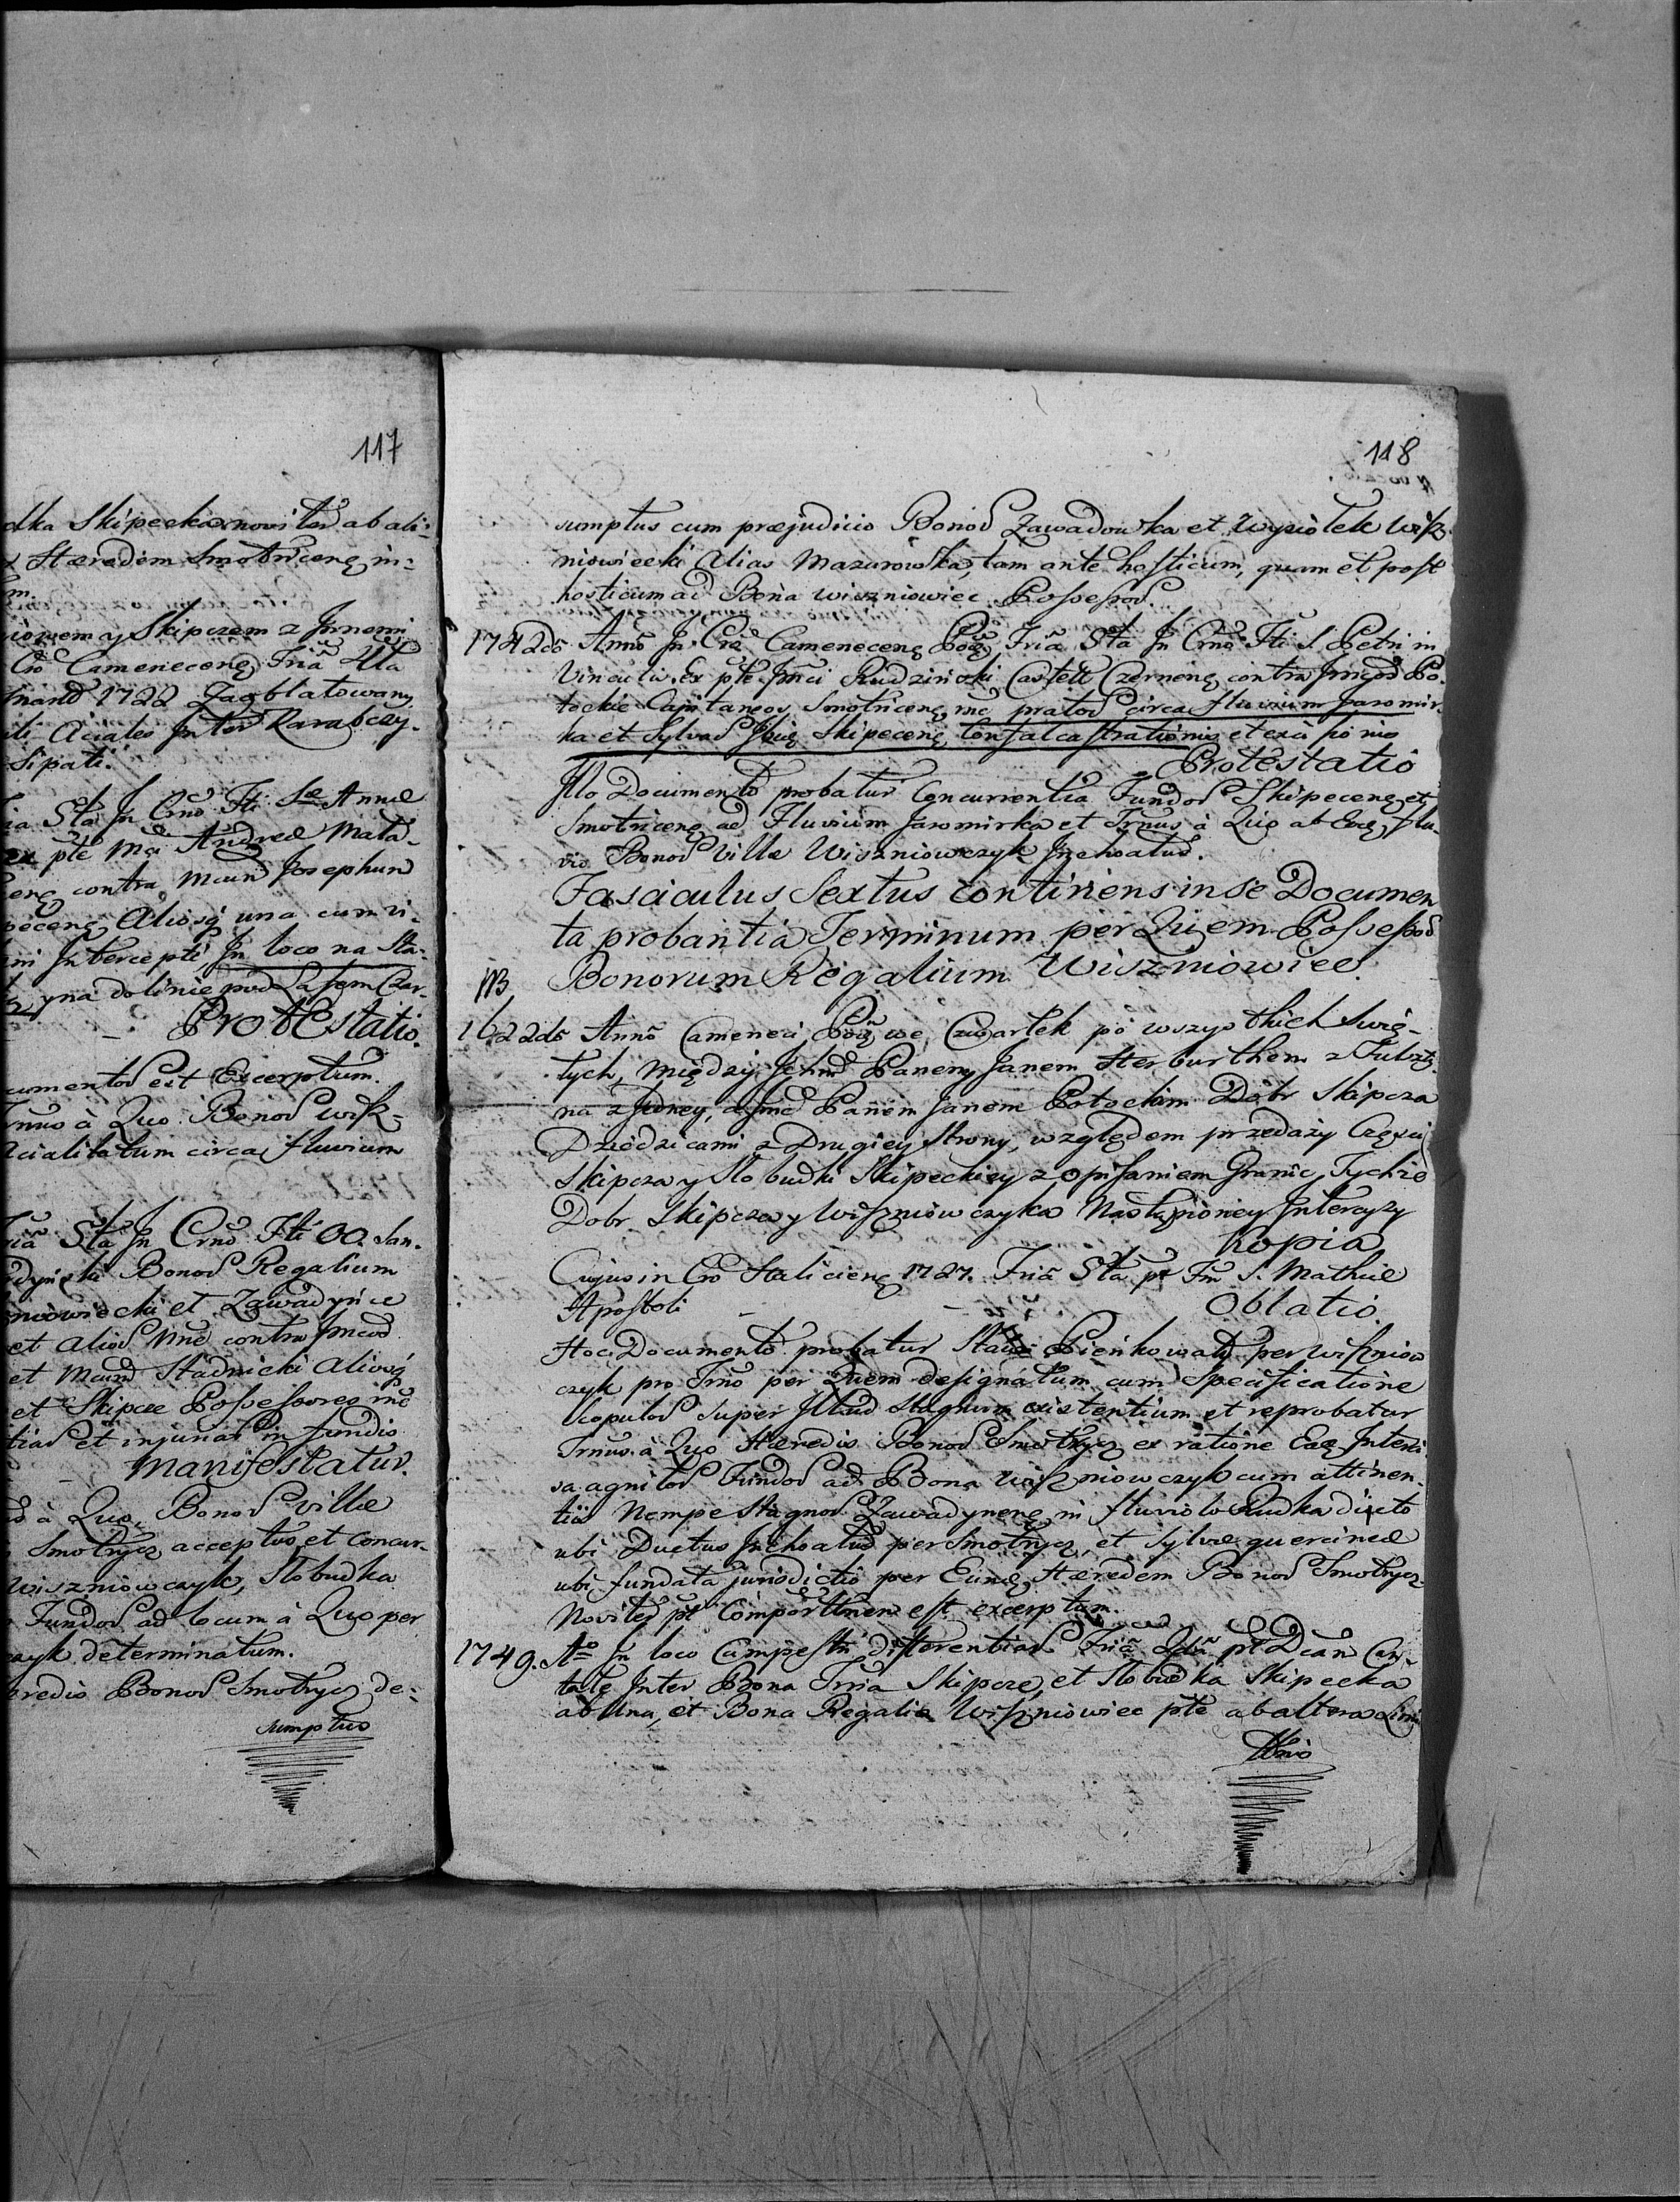 117
dka Skipecka noviter ab ali-
Hæredem Smotricen in-
m.
iowem y Skipczem z Innemi
Cro Camenecen Fria 4ta
1722 Zaoblatowany
Aciales Inter Karabczy-
sipati.
ia Sta In Crno Fti Sæ Annæ
ex pte Mci Andreæ Mata-
contra Mcum Josephum
pecen Aliosq una cum vi-
ni Intercepti In loco na Sta-
yna dolinie pod Lasem Czar-
Protestatio.
cumentor est Excerptum.
rnus à Quo Bonor Wisz-
Acialitatum circa fluvium
ria Sta In Crno Fti OO. San-
Bonor Regalium
niowiecki et Zawadynce
et alior Mne contra
et Mcum Stadnicki Aliosq
et Skipcze Possessores
tias et injurias in fundis
Manifestatur.
à Quo Bonor Villæ
Smotrycz acceptus et concur-
Wiszniowczyk, Slobudka
Fundor ad locum à Quo per
czyk determinatum.
eredis Bonor Smotrycz de-
sumptus
118
sumptus cum præjudicio Bonor Zawadowka et Wysiolek Wisz-
niowiecki Alias Mazurowka, tam ante hosticum, quam et post
hosticum ad Bona Wiszniowiec Possessor.
1742do Anno In Cra Camenecen Pod Fria Sta In Crno Fti S. Petri in
Vinculis Ex pte Mci Rudzinski Castell Czernen contra Po-
tockie Capitaneos Smotricen prator circa fluvium Jaromir-
ka et Sylvar Skipecen Confalcastrationis et
Protestatio
Illo Documento probatur Concurrentia Fundor Skipecen et
Smotricen ad Fluvium Jaromirka et Trnus à Quo ab Eoq flu-
vio Bonor Villæ Wiszniowczyk Inchoatur.
Fasciculus Sextus continens in se Documen
ta probantia Terminum per Quem Possessor
NB Bonorum Regalium Wiszniowiec.
1622do Anno Camenecii Pod we Czwartek po wszystkich Swię-
tych, Między Jchmć Panem Janem Herburthem z Fulszty-
na z Jedney, a Jmć Panem Janem Potockim Dobr Skipcza
Dziedzicami z Drugiey Strony, względem przedaży Częsci
Skipcza y Slobudki Skipeckiey z Opisaniem Granic Tychże
Dobr Skipcza y Wiszniowczyka Nastąpioney Intercyzy
Kopia
Cujus in Cro Halicien 1727. Fria Sta pt Fm S. Mathiæ
Apostoli - - Oblatio.
Hoc Documento probatur Staw Pienkowaty per Wiszniow
czyk pro Trno per Quem designatum cum Specificatione
Scopulor super Illud Stagnum existentium et reprobatur
Trnus à Quo Hæredis Bonor Smotrycz ex ratione
sa agnitor Fundor ad Bona Wiszniowczyk cum attinen-
tiis Nempe Stagnor Zawadynen in fluviolo Rudka dicto
ubi Ductus Inchoatur per Smotrycz, et sylvæ quercineæ
ubi fundata jurisdictio per Eund Hæredem Bonor Smotrycz
Noviter pt Comportnem est excerptum.
1749. Ao In loco Campestri differentiar Fria pt Dcam Can-
tate Inter Bona Trria Skipcze, et Slobudka Skipecka
ab Una, et Bona Regalia Wiszniowiec pte ab altera